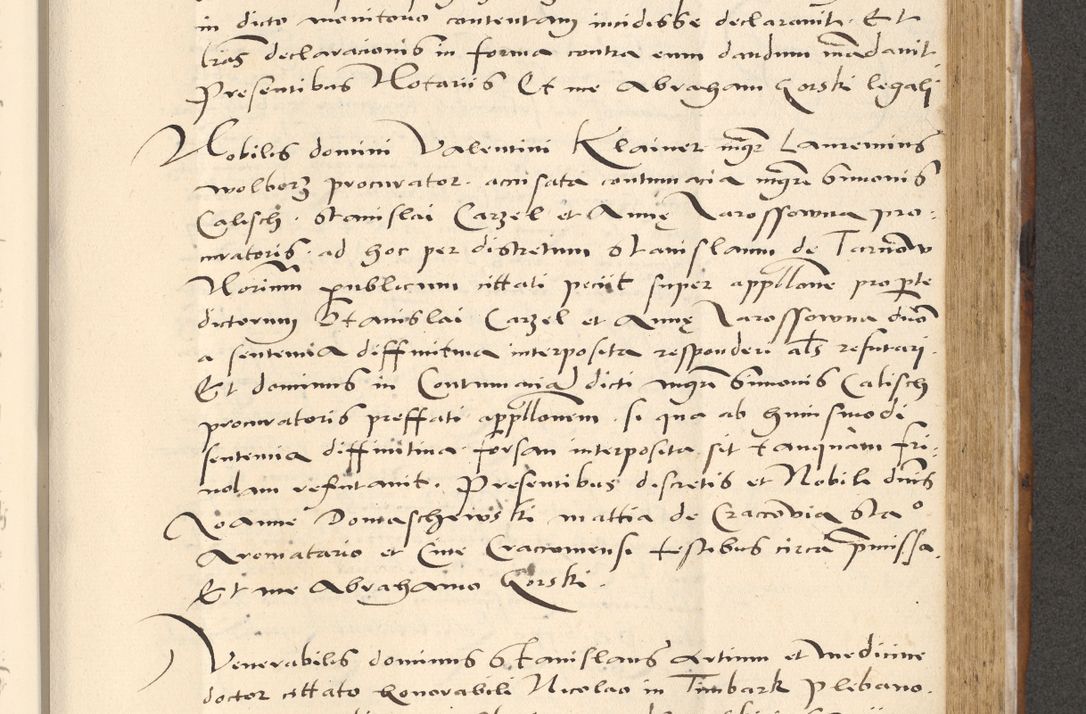 in dicto monitorio contentam incidisse declaravit. Et
lras declaracionis in forma contra eum dandum mandavit
Presentibus Notariis Et me Abraham Gorski legali
Nobilis domini Valentini Klainer mgr Laurencius
wolborz procurator. accusata contumacia mgri Simonis
Calisch. Stanislai Carzel et Annę Jarossowna pro-
curatoris. ad hoc per discretum Stanislaum de Tarnow
Norium publicum cittati peciit super appllone pro parte
dictorum Stanislai Carzel et Annę Jarossowna
a sentencia diffinitiva interposita responderi als refutari.
Et dominus in Contumaciad dicti mgri Simonis Calisch
procuratoris preffati appllonem. si qua ab huiusmodi
sentencia diffinitiva forsan interposita sit tanquam fri-
volam refutavit. Presentibus discretis et Nobili dnis
Joanne Domaschewski mattia de Cracovia
Aromatario et Cive Cracoviensi testibus circa pmissa.
Et me Abrahamo Gorski.
Venerabilis dominus Stanislaus Artium et medicine
doctor cittato honorabili Nicolao in Timbark Plebano.